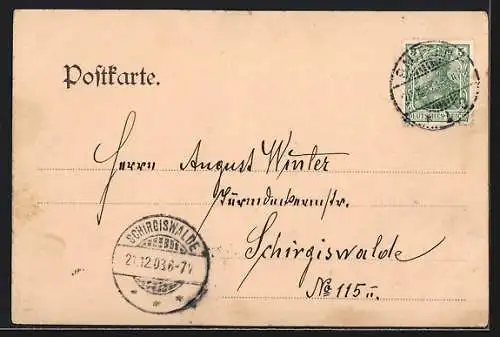 Postkarte.
5
DEUTSCHES REICH
Herrn August Winter
Schirgiswalde
No 115
SCHIRGISWALDE
21.12.03.6-7